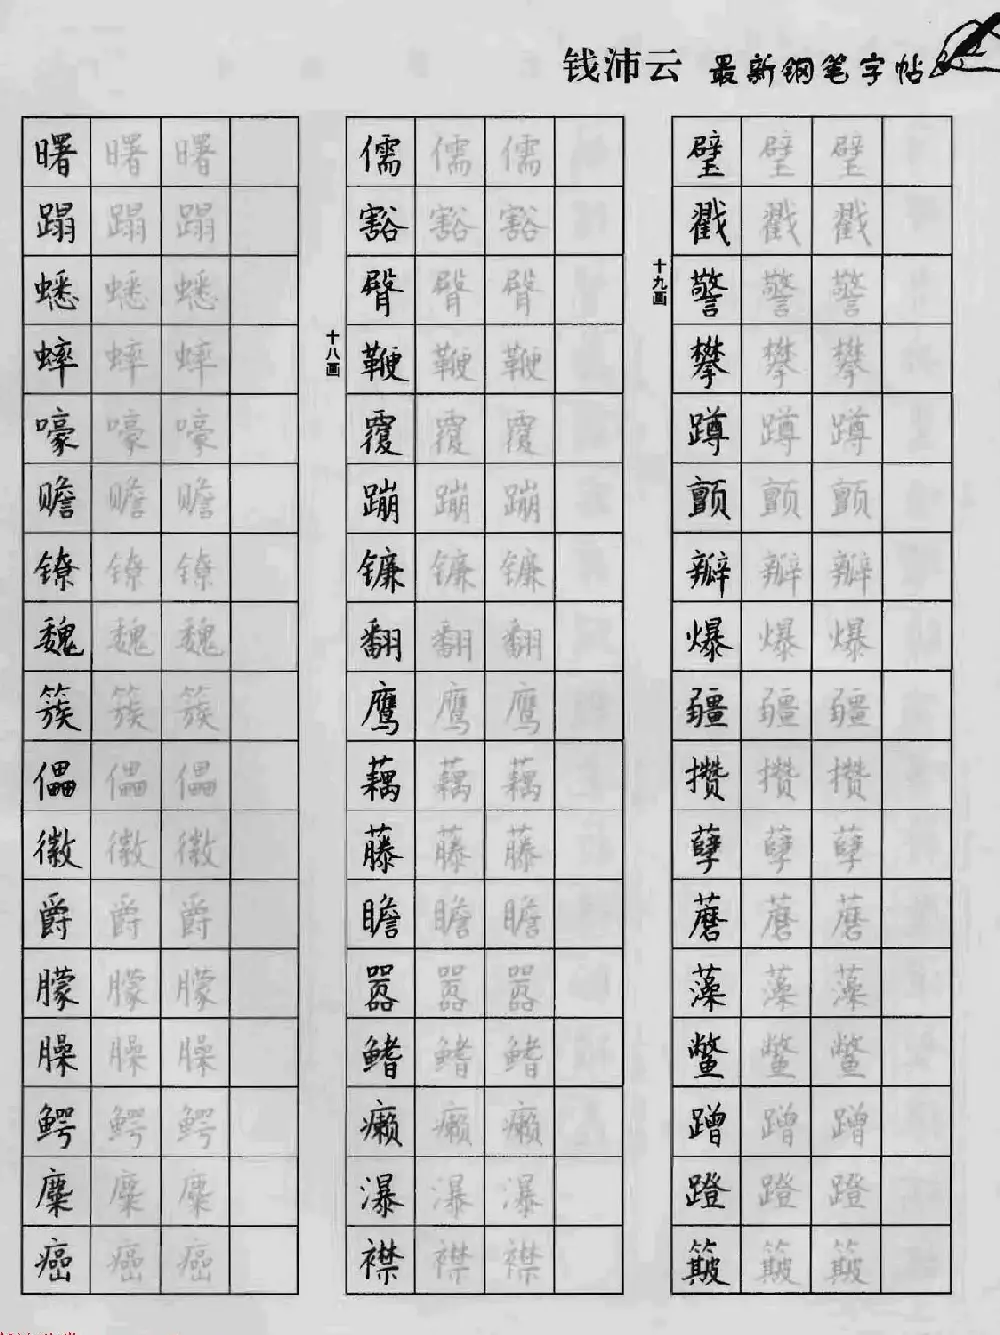 钱沛云 最新钢笔字帖
曙 曙 曙 儒 儒 儒 璧 璧 璧
蹋 蹋 蹋 豁 豁 豁 戳 戳 戳
蟋 蟋 蟋 臀 臀 臀 十九画 警 警 警
蟀 蟀 蟀 十八画 鞭 鞭 鞭 攀 攀 攀
嚎 嚎 嚎 覆 覆 覆 蹲 蹲 蹲
赡 赡 赡 蹦 蹦 蹦 颤 颤 颤
镣 镣 镣 镰 镰 镰 瓣 瓣 瓣
魏 魏 魏 翻 翻 翻 爆 爆 爆
簇 簇 簇 鹰 鹰 鹰 疆 疆 疆
儡 儡 儡 藕 藕 藕 攒 攒 攒
徽 徽 徽 藤 藤 藤 孽 孽 孽
爵 爵 爵 瞻 瞻 瞻 蘑 蘑 蘑
朦 朦 朦 嚣 嚣 嚣 藻 藻 藻
臊 臊 臊 鳍 鳍 鳍 鳖 鳖 鳖
鳄 鳄 鳄 癞 癞 癞 蹭 蹭 蹭
糜 糜 糜 瀑 瀑 瀑 蹬 蹬 蹬
癌 癌 癌 襟 襟 襟 簸 簸 簸